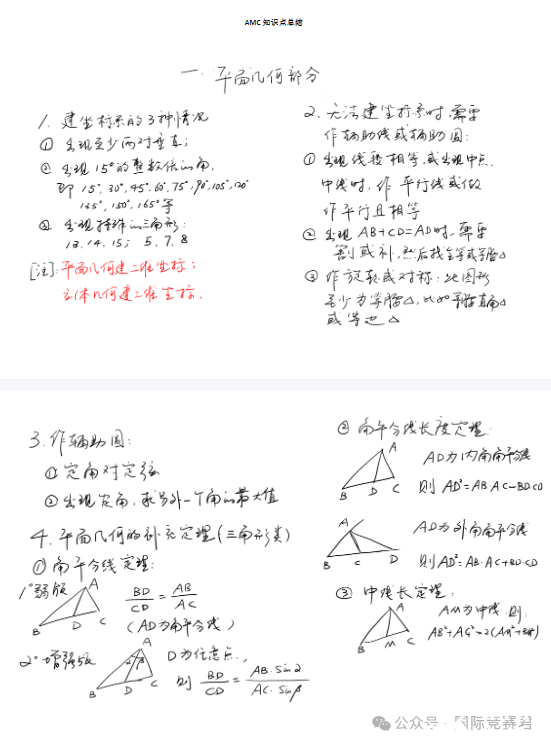 AMC 知识点总结
一. 平面几何部分
1. 建坐标系的3种情况
① 出现至少两对垂直;
② 出现15°的整数倍的角,
即 15°, 30°, 45°, 60°, 75°, 90°, 105°, 120°
135°, 150°, 165°等
③ 出现特殊的三角形:
13. 14. 15; 5. 7. 8
[注]: 平面几何建二维坐标;
立体几何建三维坐标.
2. 无法建坐标系时, 需要
作辅助线或辅助圆:
① 出现线段相等, 或出现中点.
中线时, 作平行线或做
作平行且相等
② 出现 AB+CD=AD时, 需要
割或补, 然后找全等或等腰△
③ 作旋转或对称: 此图形
至少为等腰△, 比如等腰直角△
或等边△
3. 作辅助圆:
① 定角对定弦
② 出现定角, 求另外一个角的最大值
4. 平面几何的补充定理(三角形类)
① 角平分线定理:
1° 弱版
A
B D C
BD/CD = AB/AC
(AD为角平分线)
2° 增强版
A
α β
B D C
D为任意点,
则 BD/CD = AB·Sinα/AC·Sinβ
② 角平分线长度定理:
A
B D C
AD为内角角平分线
则 AD²=AB·AC-BD·CD
A
B C D
AD为外角角平分线
则AD²=AB·AC+BD·CD
③ 中线长定理:
A
B M C
AM为中线, 则:
AB²+AC²=2(AM²+BM²)
公众号·国际竞赛君